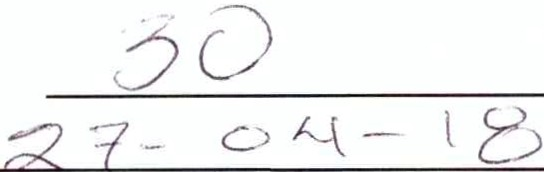 30
27- 04-18